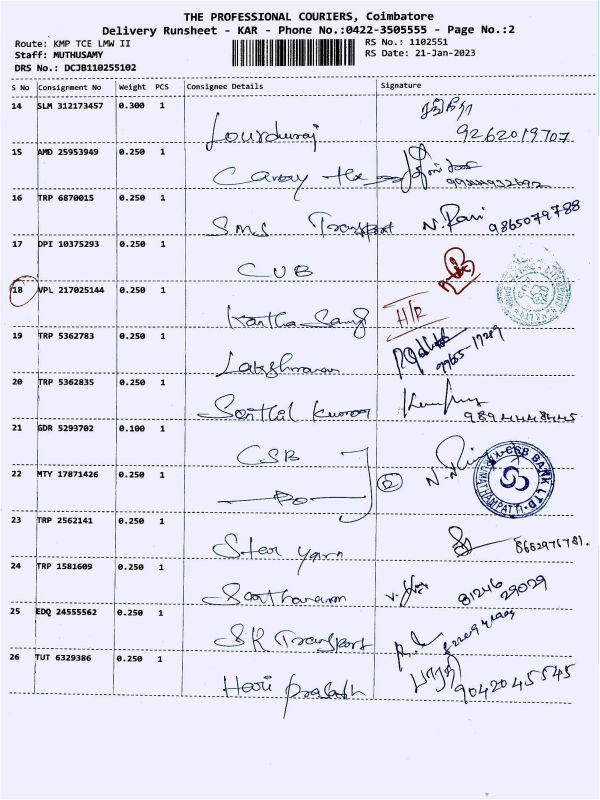 THE PROFESSIONAL COURIERS, Coimbatore
Delivery Runsheet - KAR - Phone No.:0422-3505555 - Page No.:2
Route: KMP TCE LMW II
RS No.: 1102551
Staff: MUTHUSAMY
RS Date: 21-Jan-2023
DRS No.: DCJB110255102
S No Consignment No Weight PCS Consignee Details Signature
14 SLM 312173457 0.300 1 Lourduraj 9262019707
15 AMD 25953949 0.250 1
16 TRP 6870015 0.250 1 SMS Transport N. Rani 9865079788
17 DPI 10375293 0.250 1 CUB
18 VPL 217025144 0.250 1 H/R
19 TRP 5362783 0.250 1 Lakshmanan
20 TRP 5362835 0.250 1 Senthil Kumar
21 GDR 5293702 0.100 1 CSB
22 MTY 17871426 0.250 1 Do 2
CSB BANK LTD.
23 TRP 2562141 0.250 1 Star yarn 8682976781.
24 TRP 1581609 0.250 1 81246 29029
25 EDQ 24555562 0.250 1 SK Transport
26 TUT 6329386 0.250 1 Hari Prakash 9042045545